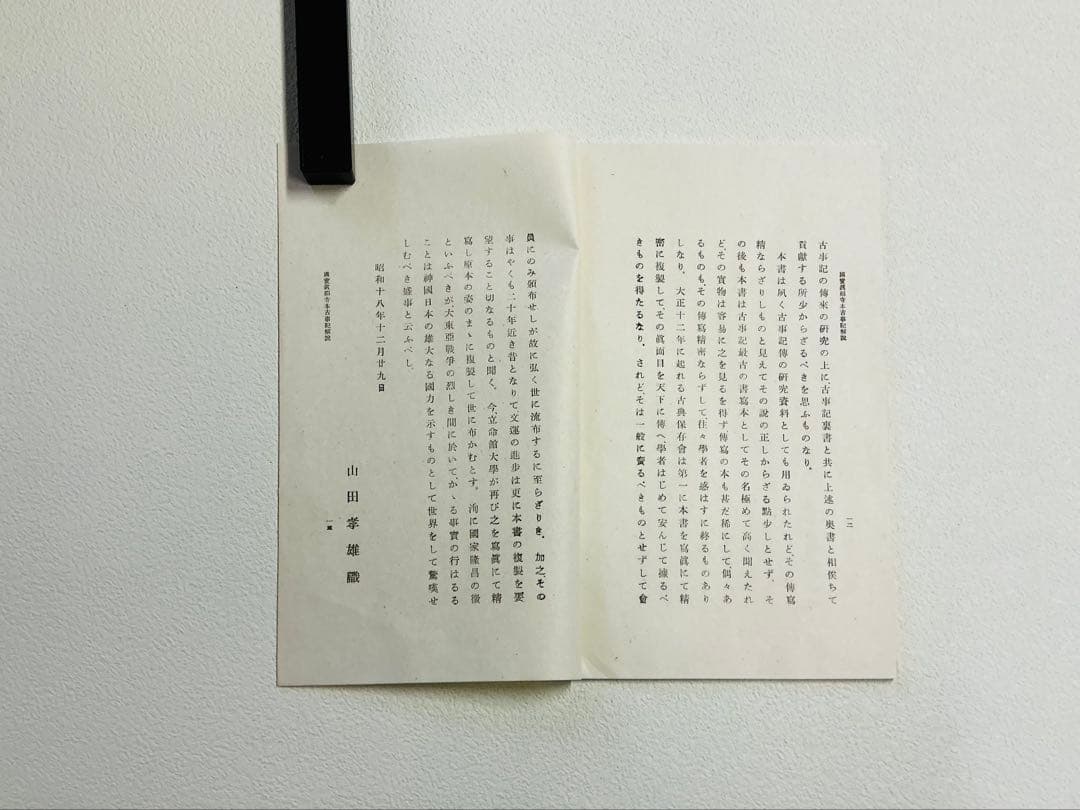 國寶眞福寺本古事記解說
一二
古事記の傳來の硏究の上に、古事記裏書と共に上述の奥書と相俟ちて
貢獻する所少からざるべきを思ふものなり。
本書は夙く古事記傳の硏究資料としても用ゐられたれど、その傳寫
精ならざりしものと見えてその說の正しからざる點少しとせず。そ
の後も本書は古事記最古の書寫本としてその名極めて高く聞えたれ
ど、その實物は容易に之を見るを得ず傳寫の本も甚だ稀にして、偶々あ
るものも、その傳寫精密ならずして、往々學者を惑はすに終るものあり
しなり。大正十二年に起れる古典保存會は第一に本書を寫眞にて精
密に複製してその眞面目を天下に傳へ、學者はじめて安んじて據るべ
きものを得たるなり。されど、そは一般に賣るべきものとせずして會
員にのみ頒布せしが故に弘く世に流布するに至らざりき。加之、その
事はやくも二十年近き昔となりて文運の進步は更に本書の複製を要
望すること切なるものと聞く。今、立命館大學が再び之を寫眞にて精
寫し原本の姿のまゝに複製して世に布かむとす。洵に國家隆昌の徵
といふべきが、大東亞戰爭の烈しき間に於いて、かゝる事實の行はるる
ことは神國日本の雄大なる國力を示すものとして世界をして驚嘆せ
しむべき盛事と云ふべし。
昭和十八年十二月廿九日
山田孝雄識
國寶眞福寺本古事記解說